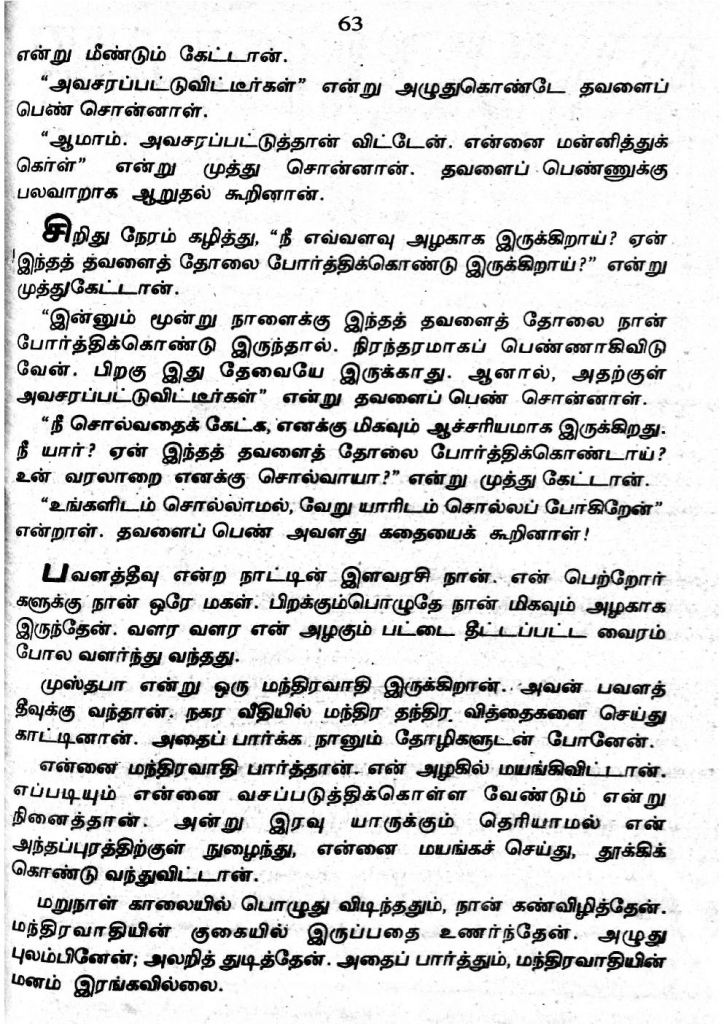 63
என்று மீண்டும் கேட்டான்.
“அவசரப்பட்டுவிட்டீர்கள்” என்று அழுதுகொண்டே தவளைப்
பெண் சொன்னாள்.
“ஆமாம். அவசரப்பட்டுத்தான் விட்டேன். என்னை மன்னித்துக்
கொள்” என்று முத்து சொன்னான். தவளைப் பெண்ணுக்கு
பலவாறாக ஆறுதல் கூறினான்.
சிறிது நேரம் கழித்து, “நீ எவ்வளவு அழகாக இருக்கிறாய்? ஏன்
இந்தத் தவளைத் தோலை போர்த்திக்கொண்டு இருக்கிறாய்?” என்று
முத்துகேட்டான்.
“இன்னும் மூன்று நாளைக்கு இந்தத் தவளைத் தோலை நான்
போர்த்திக்கொண்டு இருந்தால். நிரந்தரமாகப் பெண்ணாகிவிடு
வேன். பிறகு இது தேவையே இருக்காது. ஆனால், அதற்குள்
அவசரப்பட்டுவிட்டீர்கள்” என்று தவளைப் பெண் சொன்னாள்.
“நீ சொல்வதைக் கேட்க, எனக்கு மிகவும் ஆச்சரியமாக இருக்கிறது.
நீ யார்? ஏன் இந்தத் தவளைத் தோலை போர்த்திக்கொண்டாய்?
உன் வரலாறை எனக்கு சொல்வாயா?” என்று முத்து கேட்டான்.
“உங்களிடம் சொல்லாமல், வேறு யாரிடம் சொல்லப் போகிறேன்”
என்றாள். தவளைப் பெண் அவளது கதையைக் கூறினாள்!
பவளத்தீவு என்ற நாட்டின் இளவரசி நான். என் பெற்றோர்
களுக்கு நான் ஒரே மகள். பிறக்கும்பொழுதே நான் மிகவும் அழகாக
இருந்தேன். வளர வளர என் அழகும் பட்டை தீட்டப்பட்ட வைரம்
போல வளர்ந்து வந்தது.
முஸ்தபா என்று ஒரு மந்திரவாதி இருக்கிறான். அவன் பவளத்
தீவுக்கு வந்தான். நகர வீதியில் மந்திர தந்திர வித்தைகளை செய்து
காட்டினான். அதைப் பார்க்க நானும் தோழிகளுடன் போனேன்.
என்னை மந்திரவாதி பார்த்தான். என் அழகில் மயங்கிவிட்டான்.
எப்படியும் என்னை வசப்படுத்திக்கொள்ள வேண்டும் என்று
நினைத்தான். அன்று இரவு யாருக்கும் தெரியாமல் என்
அந்தப்புரத்திற்குள் நுழைந்து, என்னை மயங்கச் செய்து, தூக்கிக்
கொண்டு வந்துவிட்டான்.
மறுநாள் காலையில் பொழுது விடிந்ததும், நான் கண்விழித்தேன்.
மந்திரவாதியின் குகையில் இருப்பதை உணர்ந்தேன். அழுது
புலம்பினேன்; அலறித் துடித்தேன். அதைப் பார்த்தும், மந்திரவாதியின்
மனம் இரங்கவில்லை.